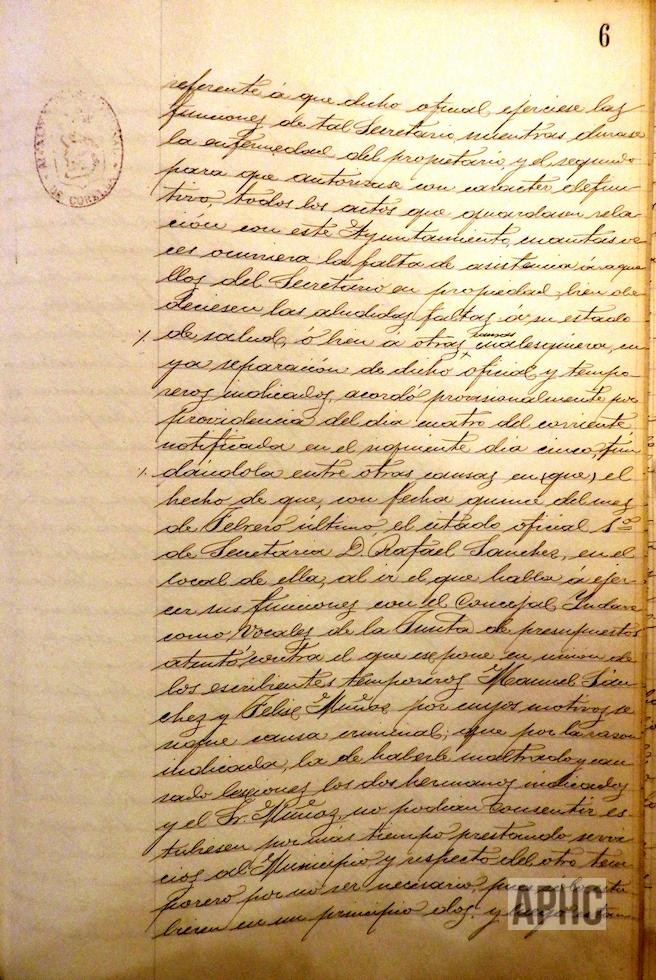 6
referente á que dicho oficial ejerciese las
funciones de tal Secretario mientras durase
la enfermedad del propietario, y el segundo
para que autorizase con carácter defini-
tivo, todos los actos que guardasen rela-
ción con este Ayuntamiento, cuantas ve-
ces ocurriera la falta de asistencia á aque-
llos del Secretario en propiedad, bien obe-
deciesen las aludidas faltas á su estado
de salud, ó bien a otras causas cualesquiera, cu-
ya separación de dicho oficial y tempo-
reros indicados, acordó provisionalmente por
providencia del dia cuatro del corriente
notificada en el siguiente dia cinco, fun-
dándola entre otras causas en (que) el
hecho de que, con fecha quince del mes
de Febrero último, el citado oficial 1º
de Secretaria D. Rafael Sanchez, en el
local de ella, al ir el que habla á ejer-
cer sus funciones con el Concejal
como Vocales de la Junta de presupuestos
atentó contra el que espone en unión de
los escribientes temporeros Manuel Sán-
chez y Felix Muñoz, por cuyos motivos se
sigue causa criminal; que por la razon
indicada, la de haberle maltratado y cau-
sado lesiones los dos hermanos indicados
y el Sr. Muñoz, no podian consentir es-
tubiesen por más tiempo prestando servi-
cios al Municipio y respecto del otro tem-
porero por no ser necesario, pues solo
bieron en un principio dos, y
APHC